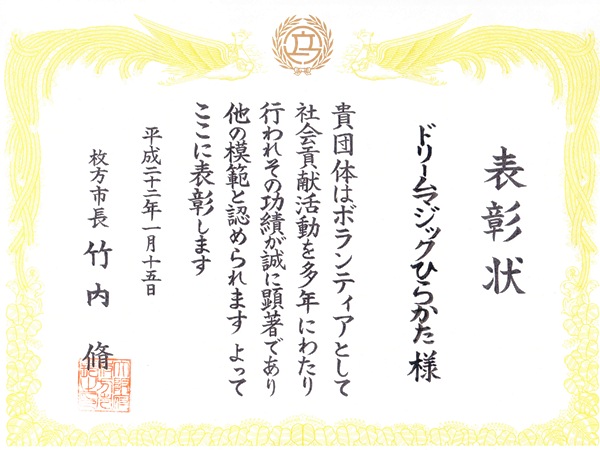 表彰状
ドリームマジックひらかた 様
貴団体はボランティアとして
社会貢献活動を多年にわたり
行われその功績が誠に顕著であり
他の模範と認められます よって
ここに表彰します
平成二十二年一月十五日
枚方市長 竹内 脩